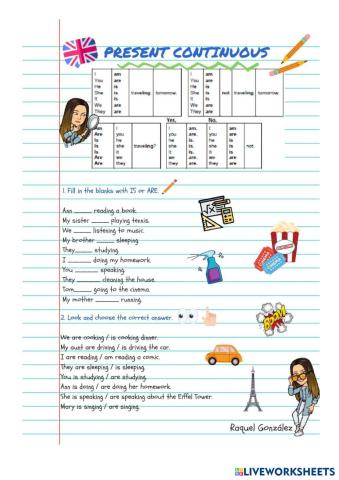 PRESENT CONTINUOUS
I am
You are
He is
She is traveling tomorrow.
It is
We are
They are
I am
You are
He is
She is not traveling tomorrow.
It is
We are
They are
Yes, No,
Am I
Are you
Is he
Is she traveling?
Is it
Are we
Are they
I am.
you are.
he is.
she is.
it is.
we are.
they are.
I am
you are
he is
she is not.
it is
we are
they are
1. Fill in the blanks with IS or ARE.
Ann _____ reading a book.
My sister _____ playing tennis.
We _____ listening to music.
My brother _____ sleeping
They_____ studying.
I _____ doing my homework.
You _____ speaking.
They _____ cleaning the house.
Tom_____ going to the cinema.
My mother _____ running.
2. Look and choose the correct answer.
We are cooking / is cooking dinner.
My aunt are driving / is driving the car.
I are reading / am reading a comic.
They are sleeping / is sleeping.
You is studying / are studying.
Ann is doing / are doing her homework.
She is speaking / are speaking about the Eiffel Tower.
Mary is singing / are singing.
Raquel González
LIVEWORKSHEETS